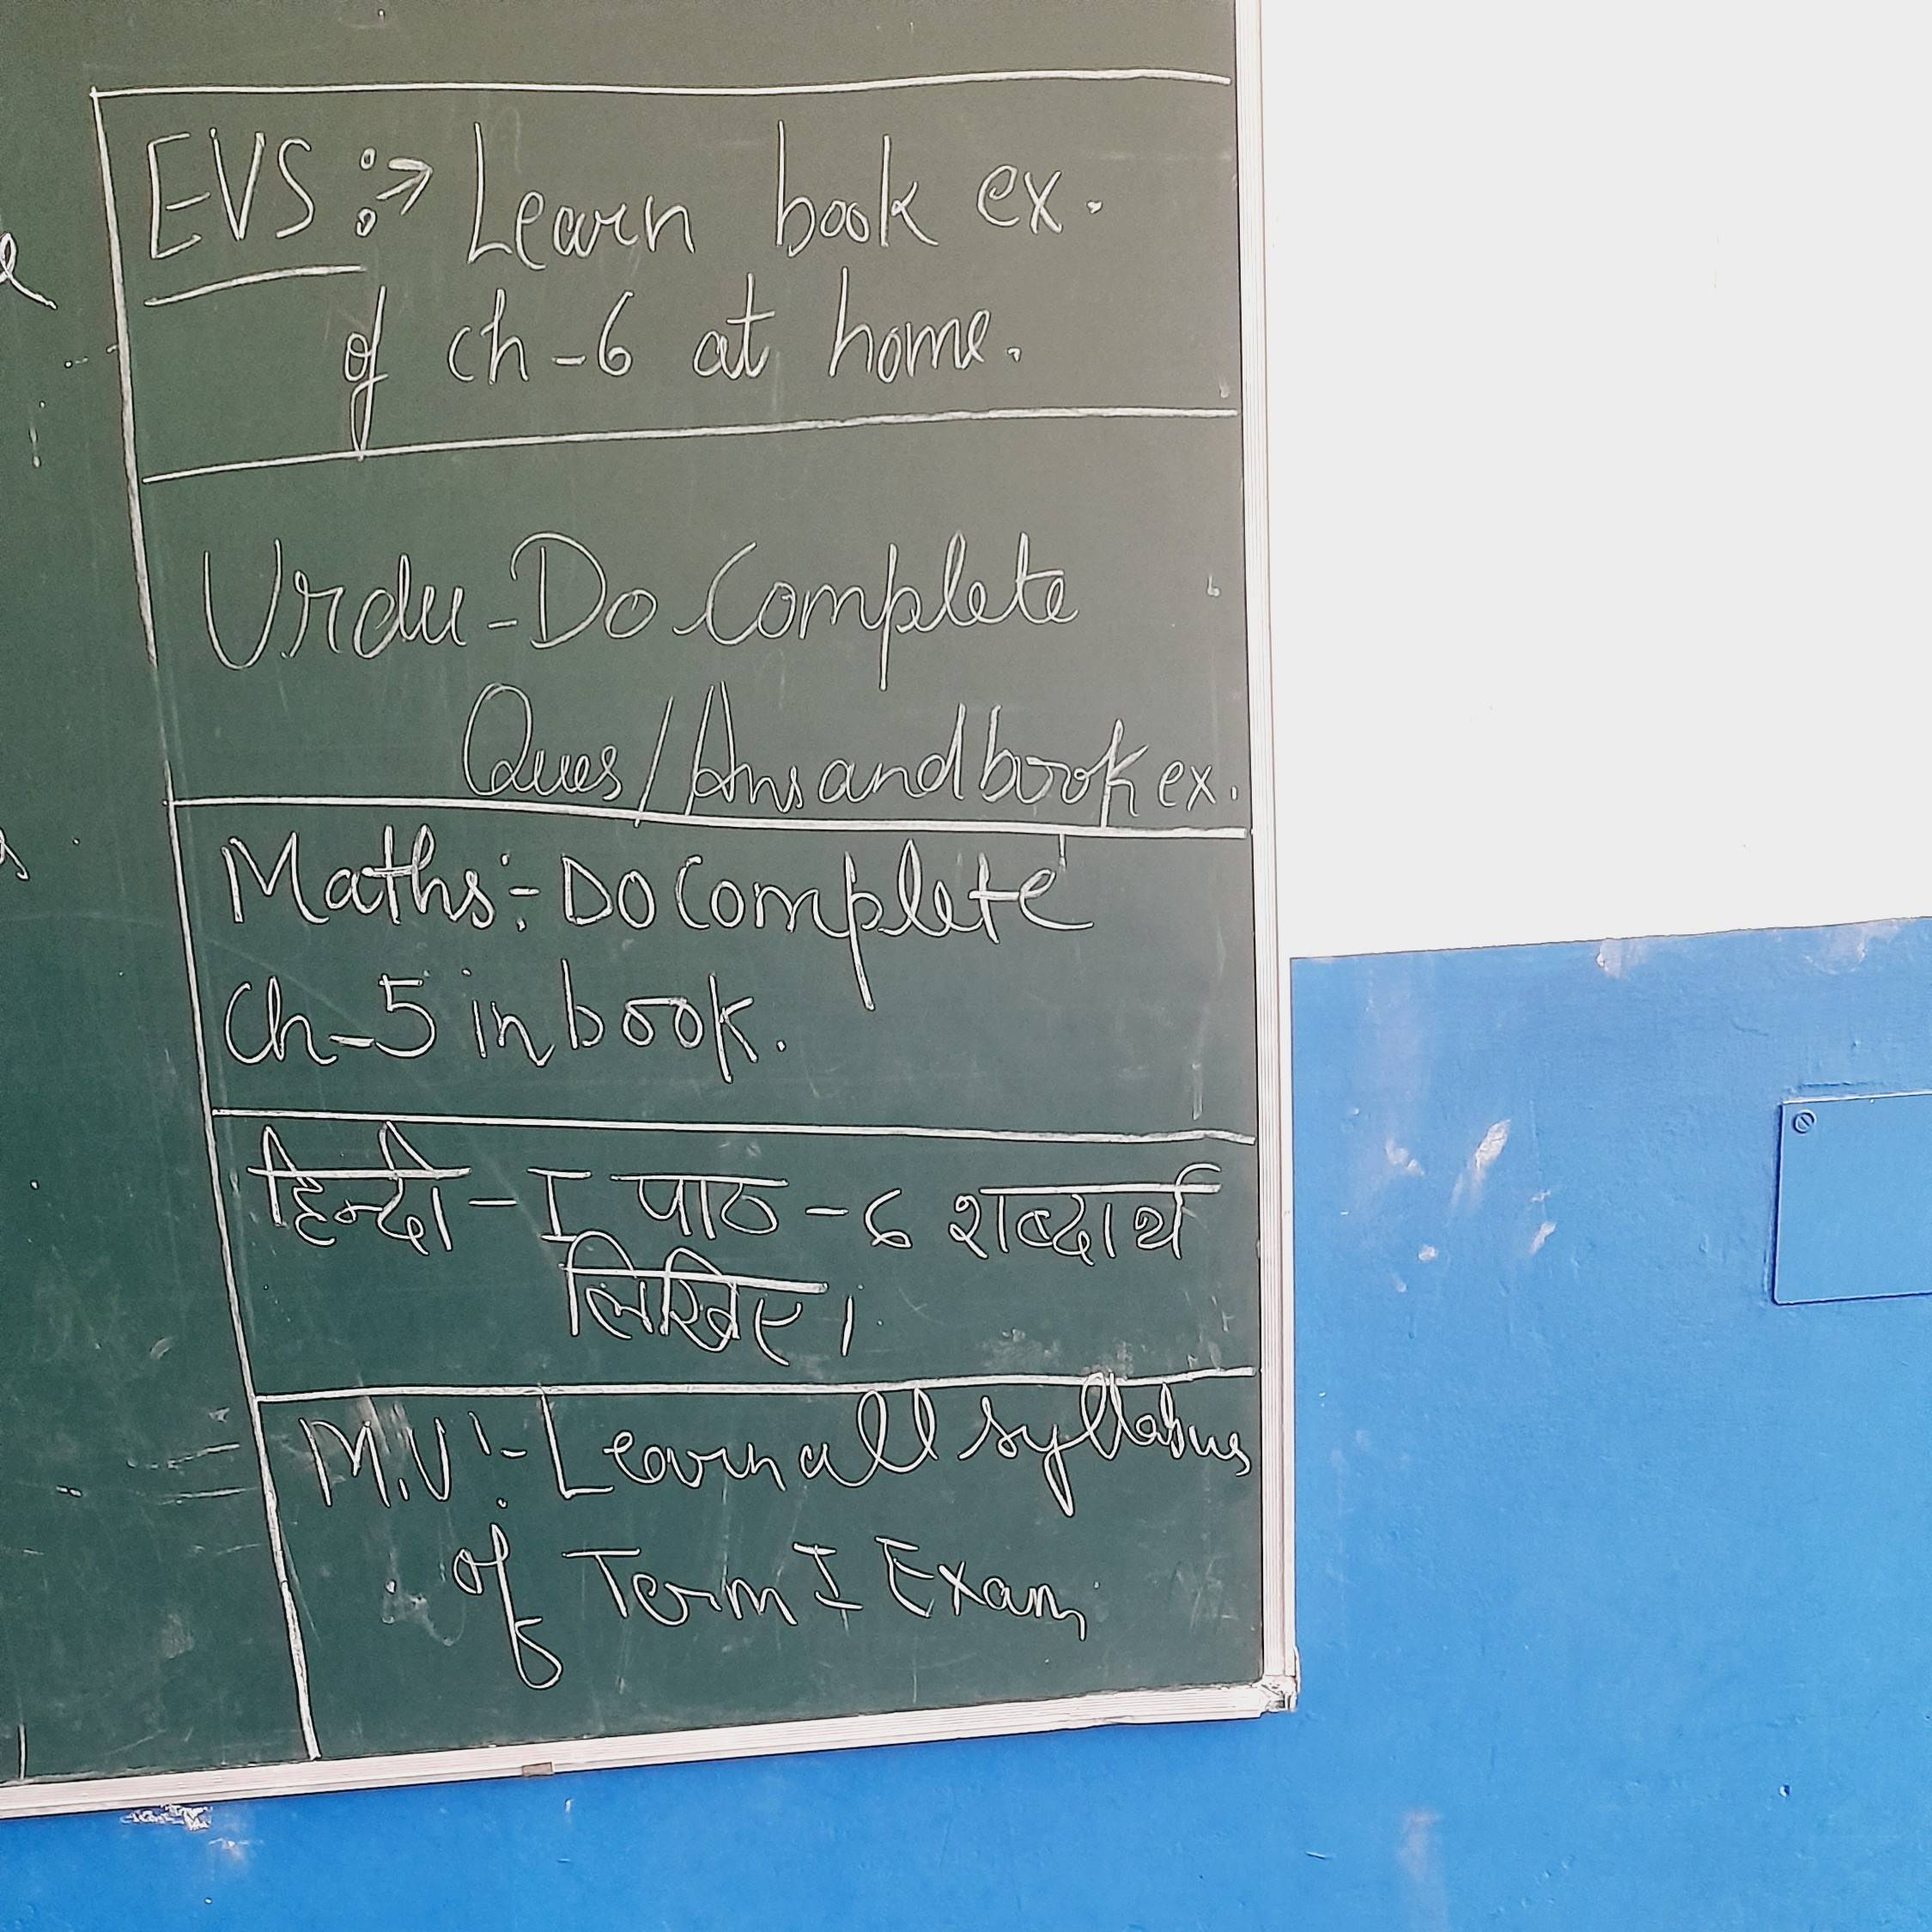 EVS :→ Learn book ex.
of ch-6 at home.
Urdu-Do Complete
Ques/Ans and book ex.
Maths:- Do complete
Ch-5 in book.
हिन्दी - I पाठ - 6 शब्दार्थ
लिखिए।
M.V:- Learn all syllabus
of Term I Exam